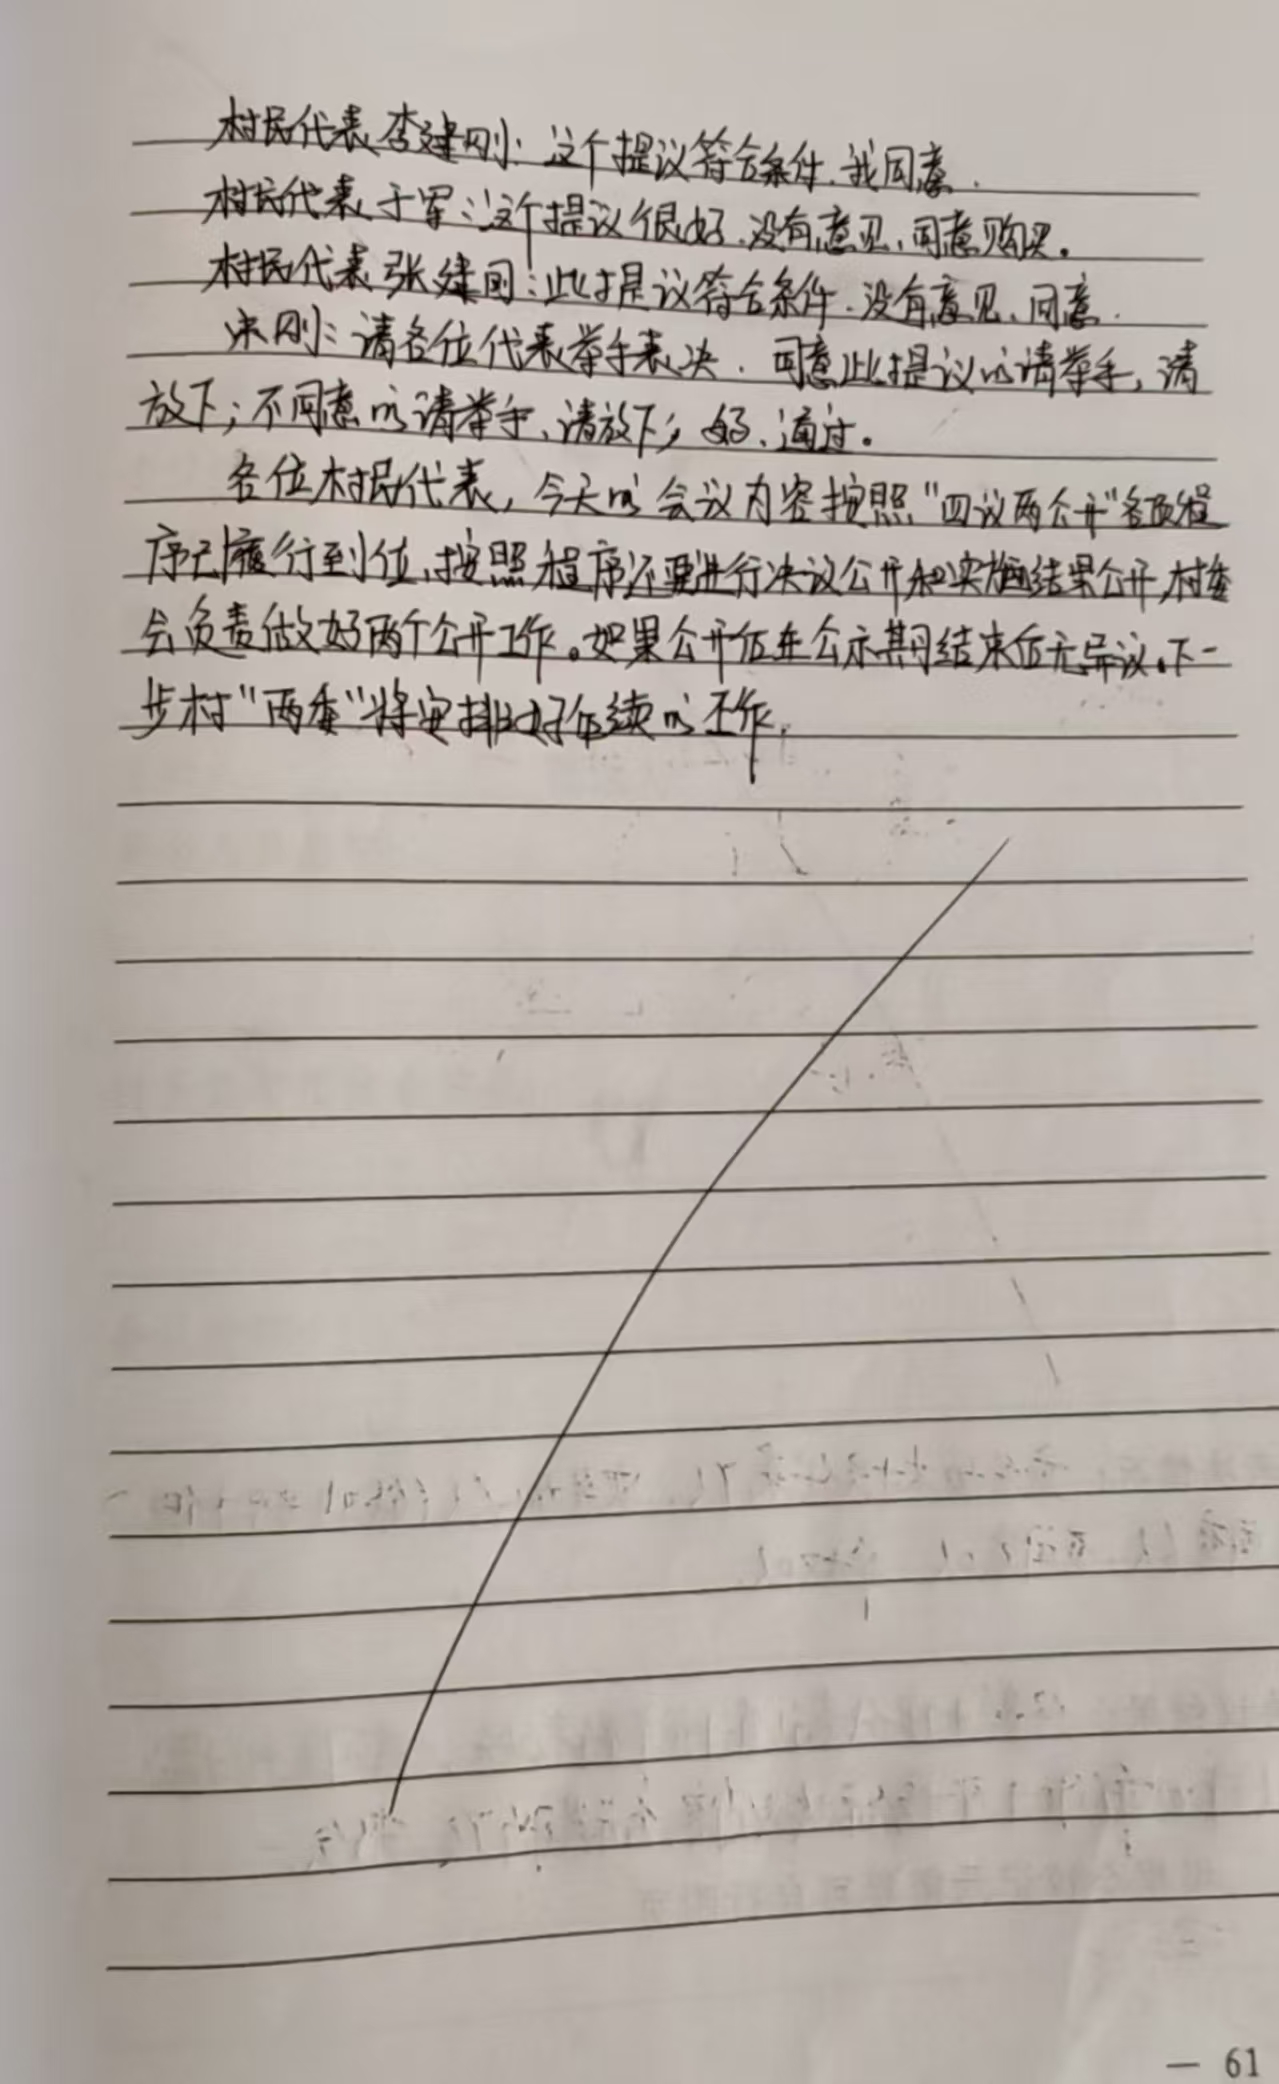 村民代表李建刚：这个提议符合条件，我同意.
村民代表于军：这个提议很好、没有意见、同意购买。
村民代表张建国：此提议符合条件、没有意见、同意.
宋刚：请各位代表举手表决．同意此提议的请举手，请
放下；不同意的请举手、请放下；好、通过。
各位村民代表，今天的会议内容按照“四议两公开”各项程
序已履行到位，按照程序还要进行决议公开和实施结果公开，村委
会负责做好两个公开工作。如果公开后在公示期结束后无异议，下一
步村“两委”将安排好后续的工作，
— 61